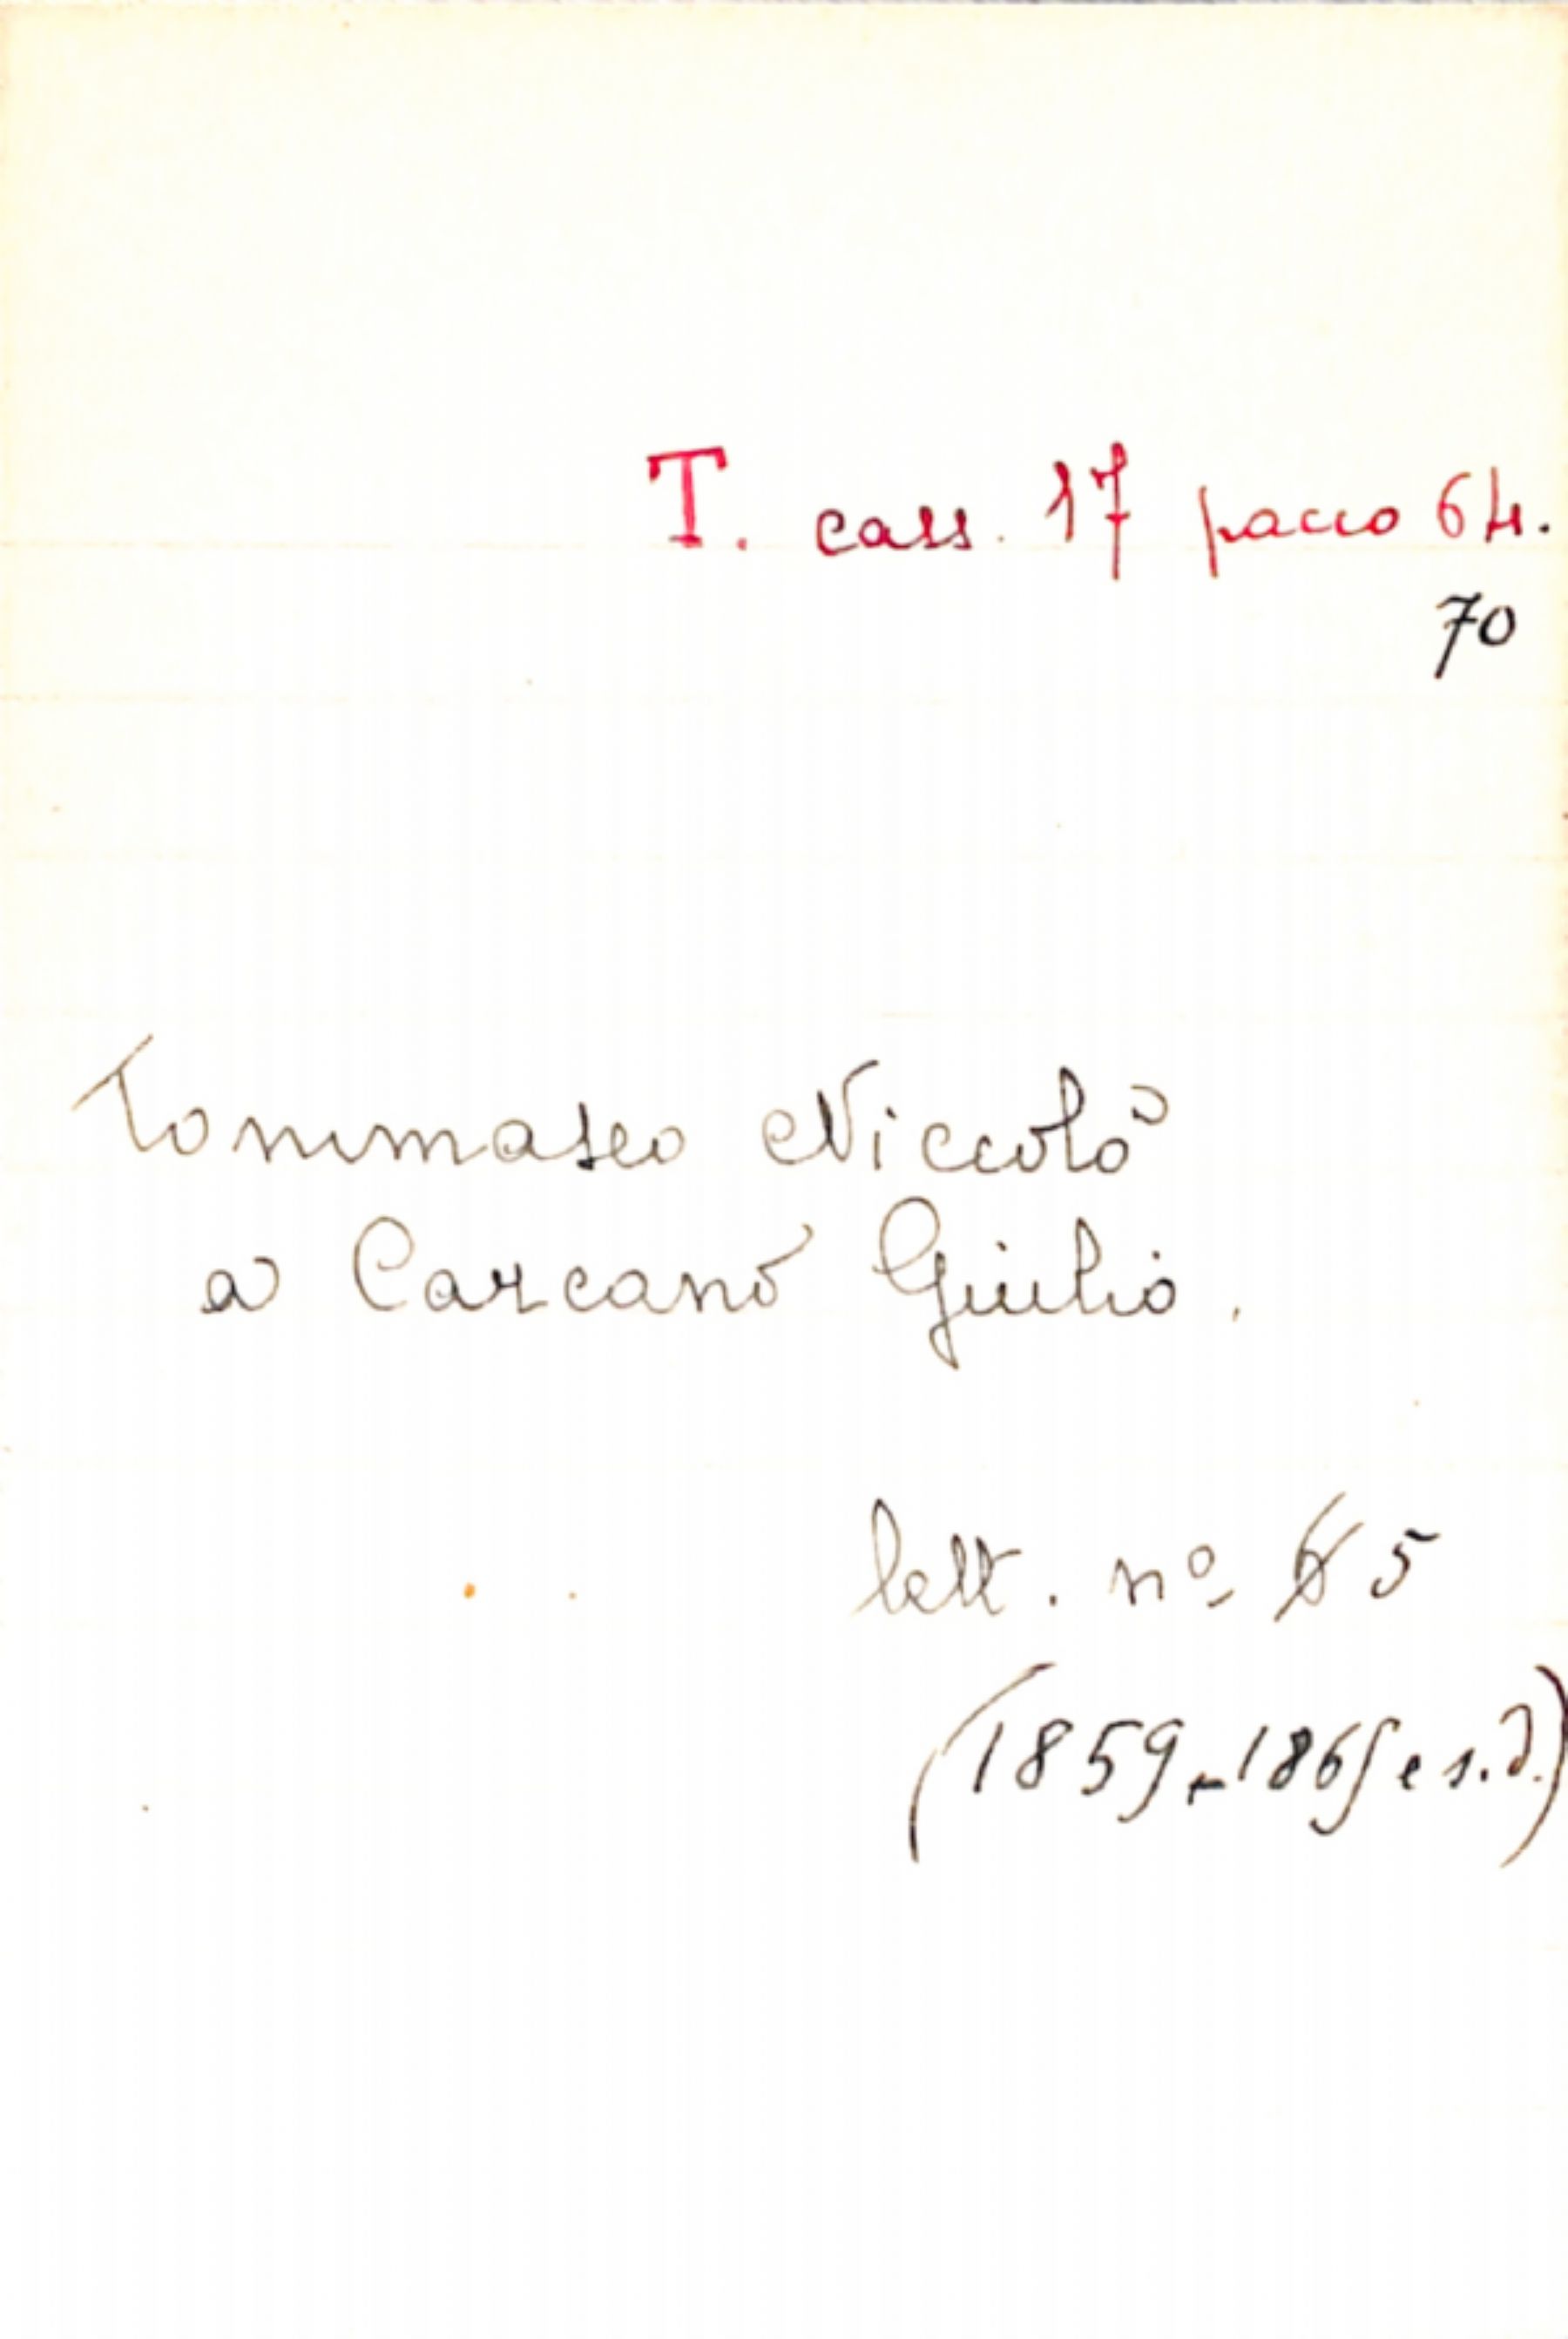 T. cass. 17 pacco 64.
70
Tommaseo Niccolò
a Carcano Giulio.
lett. nº 6 5
(1859-1865 e s.d.)